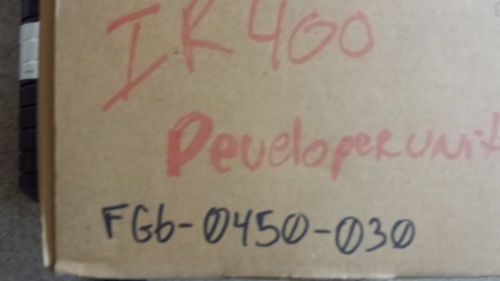 IR 400
Developer unit
FG6-0450-030